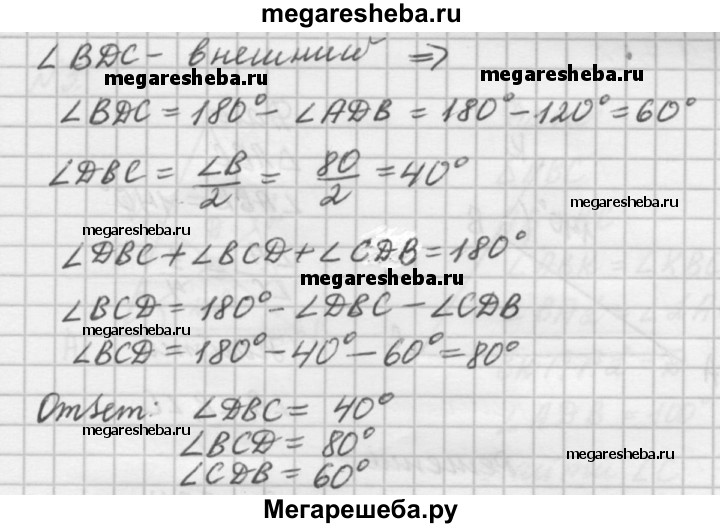 megaresheba.ru
∠BDC - внешний ⇒
megaresheba.ru megaresheba.ru
∠BDC = 180° - ∠ADB = 180° - 120° = 60°
∠DBC = ∠B/2 = 80/2 = 40°
megaresheba.ru megaresheba.ru
∠DBC + ∠BCD + ∠CDB = 180°
megaresheba.ru
∠BCD = 180° - ∠DBC - ∠CDB
megaresheba.ru
∠BCD = 180° - 40° - 60° = 80°
Ответ: ∠DBC = 40°
megaresheba.ru
∠BCD = 80°
megaresheba.ru
∠CDB = 60°
Мегарешеба.ру